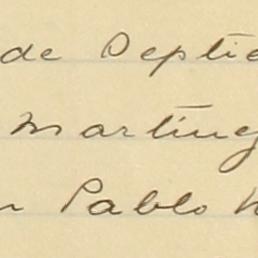 de Septie
Martinez
n Pablo